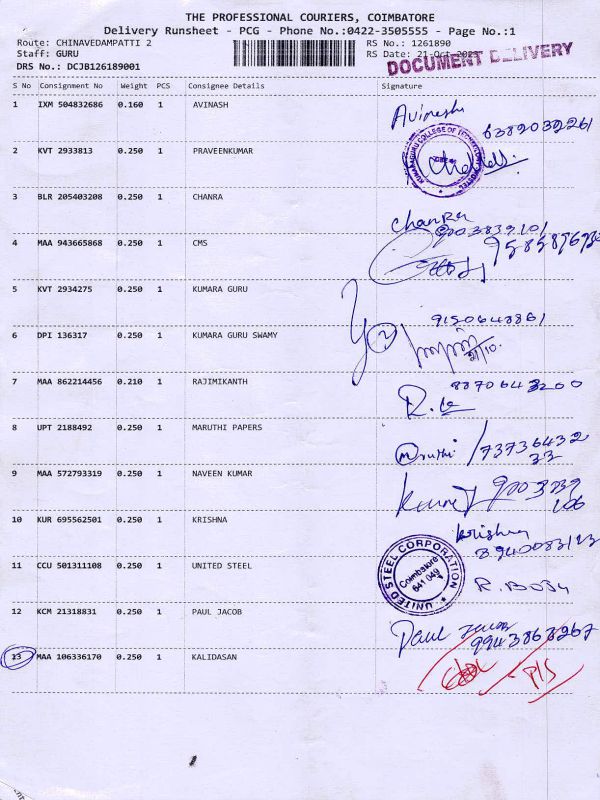 THE PROFESSIONAL COURIERS, COIMBATORE
Delivery Runsheet - PCG - Phone No.:0422-3505555 - Page No.:1
Route: CHINAVEDAMPATTI 2 RS No.: 1261890
Staff: GURU RS Date: 21-Oct-
DOCUMENT DELIVERY
DRS No.: DCJB126189001
S No Consignment No Weight PCS Consignee Details Signature
1 IXM 504832686 0.160 1 AVINASH Avinash
6382039261
2 KVT 2933813 0.250 1 PRAVEENKUMAR
3 BLR 205403208 0.250 1 CHANRA Chanra
9003839101
4 MAA 943665868 0.250 1 CMS
5 KVT 2934275 0.250 1 KUMARA GURU
9150648861
6 DPI 136317 0.250 1 KUMARA GURU SWAMY
7 MAA 862214456 0.210 1 RAJIMIKANTH
8870643200
8 UPT 2188492 0.250 1 MARUTHI PAPERS Maruthi / 73736432
33
9 MAA 572793319 0.250 1 NAVEEN KUMAR
106
10 KUR 695562501 0.250 1 KRISHNA Krishna
11 CCU 501311108 0.250 1 UNITED STEEL
UNITED STEEL CORPORATION
Coimbatore
641 049
12 KCM 21318831 0.250 1 PAUL JACOB Paul Jacob
9943863267
13 MAA 106336170 0.250 1 KALIDASAN